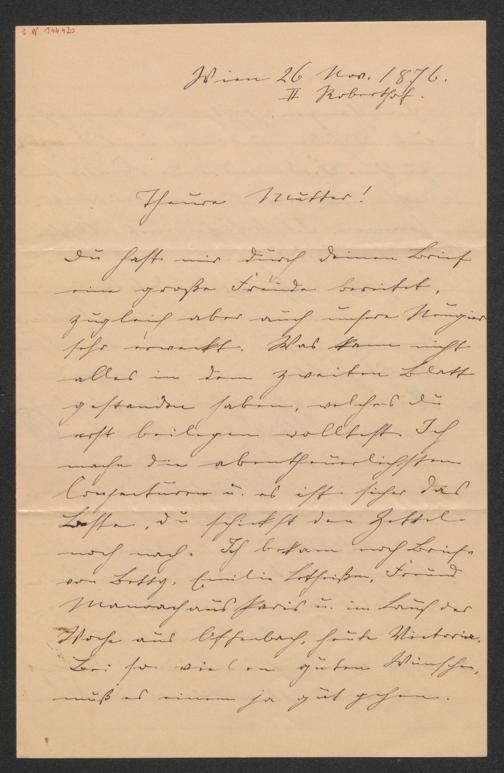 I N 144.420
Wien 26 Nov. 1876.
II Roberthof.
Theure Mutter!
Du hast mir durch deinen Brief
eine große Freude bereitet,
zugleich aber auch unsre Neugier
sehr erweckt. Was kann nicht
alles in dem zweiten Blatt
gestanden haben, welches du
erst beilegen wolltest. Ich
mache die abentheuerlichsten
Conjecturen u. es ist sicher das
Beste, du schickst den Zettel
noch nach. Ich bekam noch Briefe
von Betty, Emilie, Freund
aus Paris u. im Lauf der
Woche aus Offenbach, heute Victoria.
Bei so vielen guten Wünschen,
muß es einem ja gut gehen.